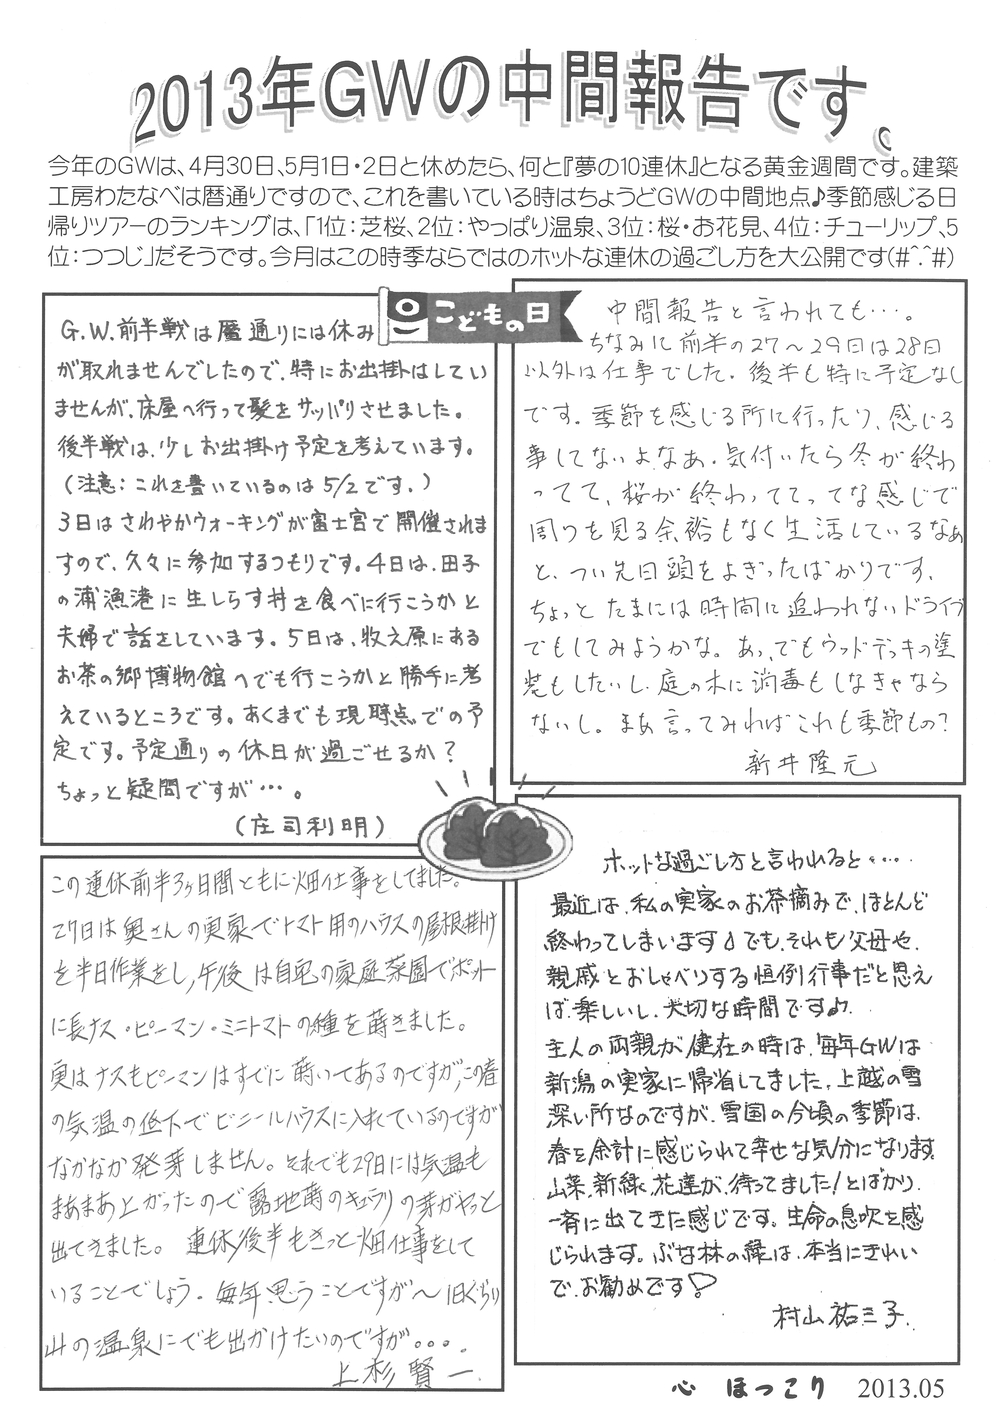 2013年GWの中間報告です。
今年のGWは、4月30日、5月1日・2日と休めたら、何と『夢の10連休』となる黄金週間です。建築
工房わたなべは暦通りですので、これを書いている時はちょうどGWの中間地点♪季節感じる日
帰りツアーのランキングは、「1位：芝桜、2位：やっぱり温泉、3位：桜・お花見、4位：チューリップ、5
位：つつじ」だそうです。今月はこの時季ならではのホットな連休の過ごし方を大公開です(#^.^#)
こどもの日
G.W.前半戦は暦通りには休み
が取れませんでしたので、特にお出掛はしてい
ませんが、床屋へ行って髪をサッパリさせました。
後半戦は、少しお出掛け予定を考えています。
(注意：これを書いているのは5/2です.)
3日はさわやかウォーキングが富士宮で開催されま
すので、久々に参加するつもりです。4日は、田子
の浦漁港に生しらす丼を食べに行こうかと
夫婦で話をしています。5日は、牧之原にある
お茶の郷博物館へでも行こうかと勝手に考
えているところです。あくまでも現時点での予
定です。予定通りの休日が過ごせるか？
ちょっと疑問ですが…。
(庄司利明)
中間報告と言われても…。
ちなみに前半の27～29日は28日
以外は仕事でした。後半も特に予定なし
です。季節を感じる所に行ったり、感じる
事してないよなあ。気付いたら冬が終わ
ってて、桜が終わっててってな感じで
周りを見る余裕もなく生活しているなぁ
と、つい先日頭をよぎったばかりです。
ちょっとたまには時間に追われないドライブ
でもしてみようかな。あっ、でもウッドデッキの塗
装もしたいし、庭の木に消毒もしなきゃなら
ないし。まあ言ってみればこれも季節もの？
新井隆元
この連休前半3ヶ日間ともに畑仕事をしてました。
27日は奥さんの実家でトマト用のハウスの屋根掛け
を半日作業をし、午後は自宅の家庭菜園でポット
に長ナス・ピーマン・ミニトマトの種を蒔きました。
実はナスもピーマンはすでに蒔いてあるのですが、この春
の気温の低下でビニールハウスに入れているのですが
なかなか発芽しません。それでも29日には気温も
まあまあ上がったので露地蒔のキュウリの芽がやっと
出てきました。連休後半もきっと畑仕事をして
いることでしょう。毎年思うことですが～1日ぐらい
山の温泉にでも出かけたいのですが。。。
上杉賢一
ホットな過ごし方と言われると‥‥
最近は、私の実家のお茶摘みで、ほとんど
終わってしまいます♪でも、それも父母や、
親戚とおしゃべりする恒例行事だと思え
ば、楽しいし、大切な時間です♪
主人の両親が健在の時は、毎年GWは
新潟の実家に帰省してました。上越の雪
深い所なのですが、雪国の今頃の季節は、
春を余計に感じられて幸せな気分になります。
山菜、新緑、花達が、待ってました！とばかり、
一斉に出てきた感じです。生命の息吹を感
じられます。ぶな林の緑は、本当にきれい
で、お勧めです♡
村山祐三子
心 ほっこり 2013.05